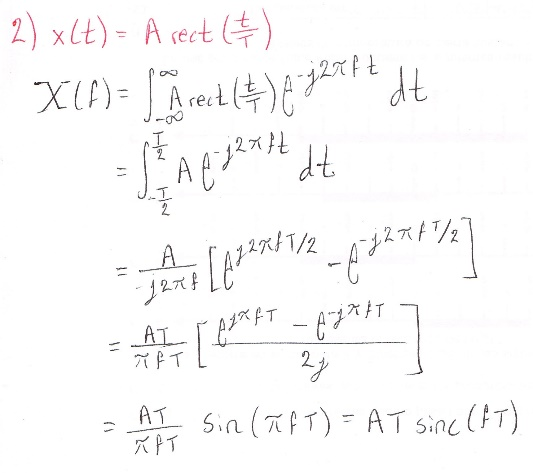 2) x(t) = A rect(t/T)
X(f) = ∫_{-∞}^{∞} A rect(t/T) e^{-j2πft} dt
= ∫_{-T/2}^{T/2} A e^{-j2πft} dt
= A/(-j2πf) [e^{j2πfT/2} - e^{-j2πfT/2}]
= AT/(πfT) [(e^{jπfT} - e^{-jπfT})/(2j)]
= AT/(πfT) sin(πfT) = AT sinc(fT)